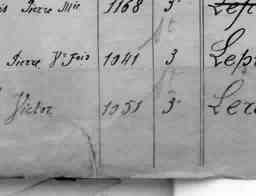 Pierre Mie 1168 3
Pierre Vr Fois 1041 3 Lep
Victor 1051 3 Ler